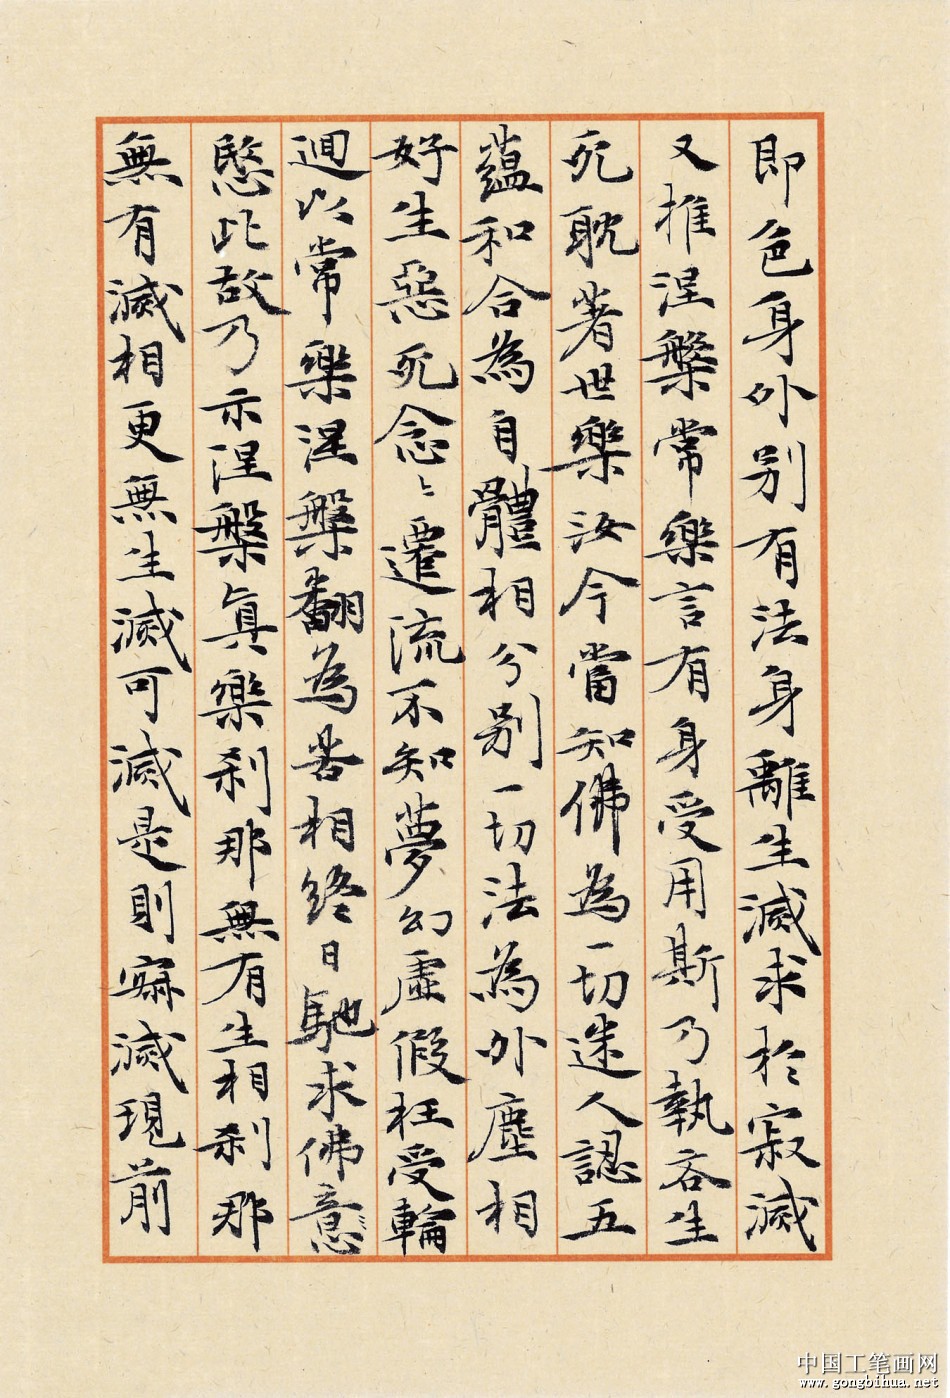 即色身外別有法身離生滅求於寂滅
又推涅槃常樂言有身受用斯乃執吝生
死耽著世樂汝今當知佛為一切迷人認五
蘊和合為自體相分別一切法為外塵相
好生惡死念念遷流不知夢幻虛假枉受輪
迴以常樂涅槃翻為苦相終日馳求佛意
愍此故乃示涅槃真樂刹那無有生相刹那
無有滅相更無生滅可滅是則寂滅現前
中国工笔画网
www.gongbihua.net